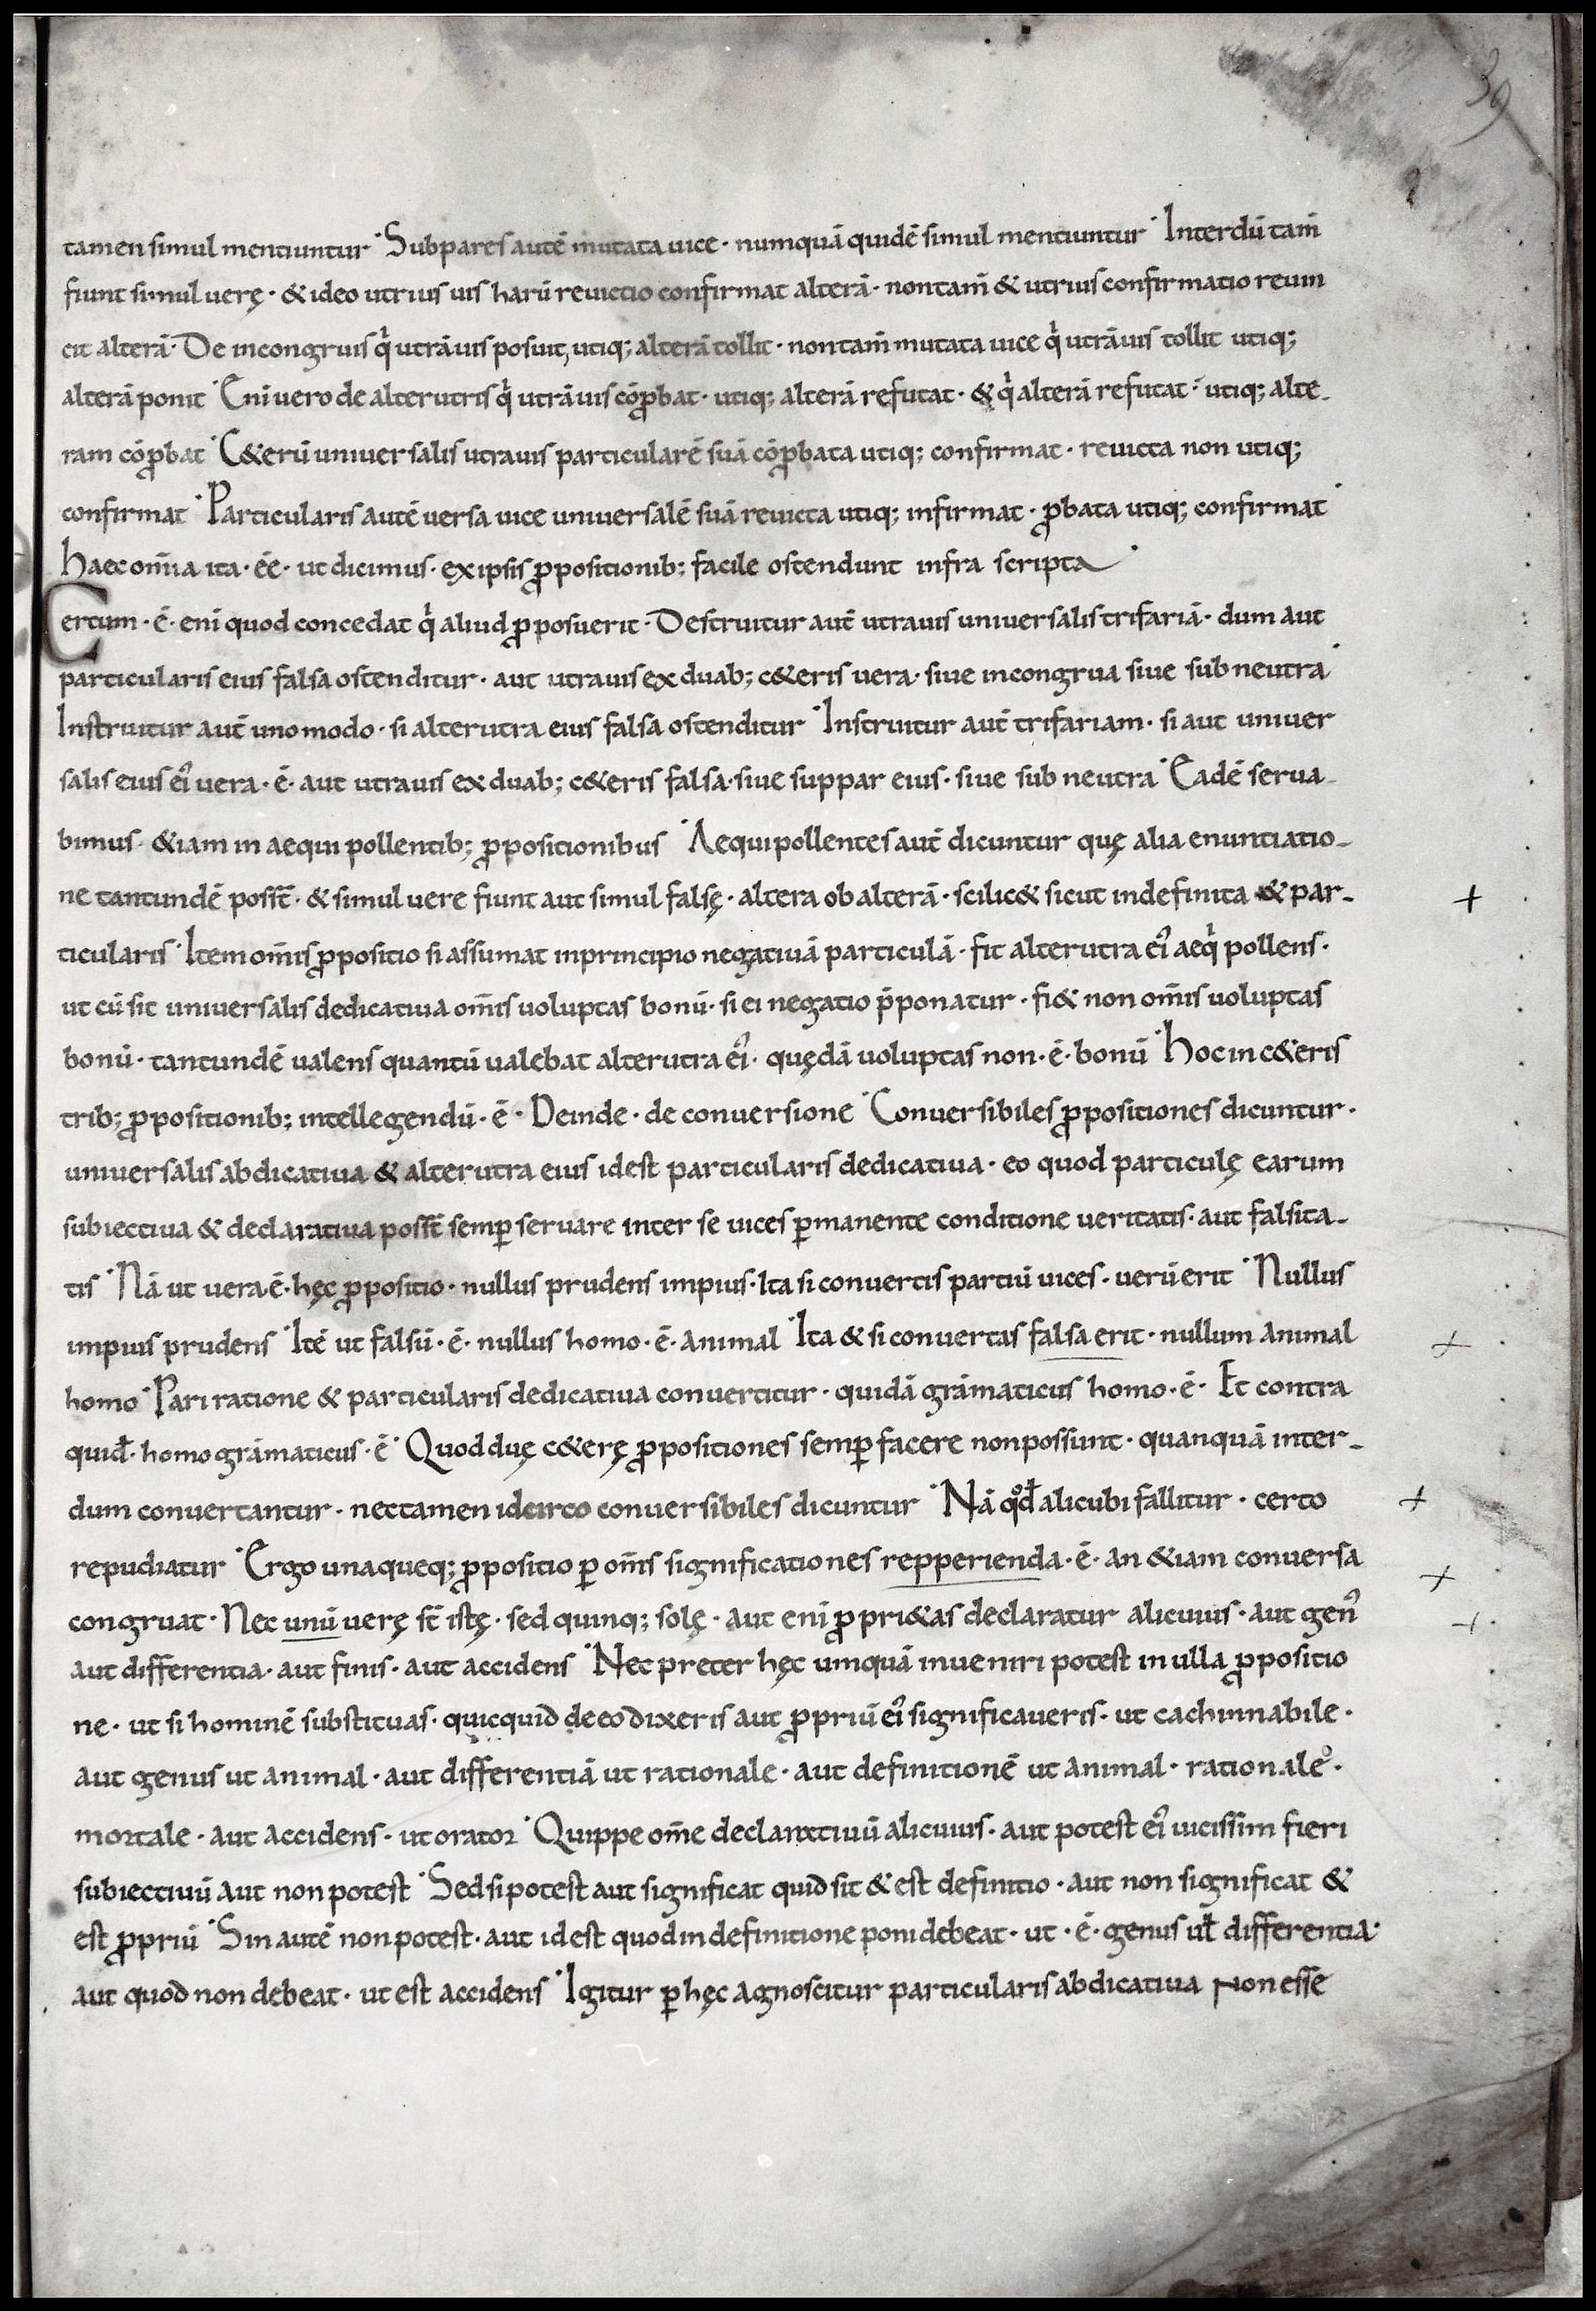 39
tamen simul mentiuntur · Subpares autē mutata uice · numquā quidē simul mentiuntur · Interdū tam̄
fiunt simul uerę · & ideo utrius uis harū reuictio confirmat alterā · non tam̄ & utrius confirmatio reuin
cit alterā · De incongruis q̇ utrāuis posuit, utiq; alterā tollit · non tam̄ mutata uice q̇ utrāuis tollit utiq;
alterā ponit · Eni uero de alterutris q̇ utrāuis cōꝓbat · utiq; alterā refutat · & q̇ alterā refutat · utiq; alte-
ram cōꝓbat · C&erū uniuersalis utrauis particularē suā cōꝓbata utiq; confirmat · reuicta non utiq;
confirmat · Particularis autē uersa uice uniuersalē suā reuicta utiq; infirmat · ꝓbata utiq; confirmat ·
haec om̄ia ita · ēē · ut dicimus · ex ipsis ꝓpositionib; facile ostendunt infra scripta ·
Certum · ē · enī quod concedat q̇ aliud ꝓposuerit · Destruitur aut̄ utrauis uniuersalis trifariā · dum aut
particularis eius falsa ostenditur · aut utrauis ex duab; c&eris uera · siue incongrua siue subneutra ·
Instruitur aut̄ uno modo · si alterutra eius falsa ostenditur · Instruitur aut̄ trifariam · si aut uniuer
salis eius eiꝰ uera · ē · aut utrauis ex duab; c&eris falsa · siue suppar eius · siue subneutra · Eadē serua-
bimus · &iam in aequipollentib; ꝓpositionibus · Aequipollentes aut̄ dicuntur quę alia enuntiatio-
ne tantundē possт̄ · & simul uere fiunt aut simul falsę · altera ob alterā · scilic& sicut indefinita & par-
ticularis · Item om̄is ꝓpositio si assumat in principio negatiuā particulā · fit alterutra eiꝰ aeq̇pollens ·
ut cū sit uniuersalis dedicatiua om̄is uoluptas bonū · si ei negatio p̄ponatur · fi& non om̄is uoluptas
bonū · tantundē ualens quantū ualebat alterutra eiꝰ · quędā uoluptas non · ē · bonū · hoc in c&eris
trib; ꝓpositionib; intellegendū · ē · Deinde · de conuersione · Conuersibiles ꝓpositiones dicuntur ·
uniuersalis abdicatiua & alterutra eius idest particularis dedicatiua · eo quod particulę earum
subiectiua & declaratiua possт̄ semꝑ seruare inter se uices ꝑmanente conditione ueritatis · aut falsita-
tis · Nā ut uera ē · hęc ꝓpositio · nullus prudens impius · Ita si conuertis partiū uices · uerū erit · Nullus
impius prudens · Itē ut falsū · ē · nullus homo · ē · animal · Ita & si conuertas falsa erit · nullum animal
homo · Pari ratione & particularis dedicatiua conuertitur · quidā grāmaticus homo · ē · Et contra
quid̄ · homo grāmaticus · ē · Quod duę c&erę ꝓpositiones semꝑ facere non possunt · quanquā inter-
dum conuertantur · nec tamen idcirco conuersibiles dicuntur · Nā qđ alicubi fallitur · certo
repudiatur · Ergo unaqueq; ꝓpositio ꝑ om̄is significationes repperienda · ē · an &iam conuersa
congruat · Nec unū uerę st̄ istę · sed quinq; solę · aut enī ꝓpri&as declaratur alicuius · aut genꝰ
aut differentia · aut finis · aut accidens · Nec preter hęc umquā inueniri potest in ulla ꝓpositio
ne · ut si hominē substituas · quicquid de eo dixeris aut ꝓpriū eiꝰ significaueris · ut cachinnabile ·
aut genus ut animal · aut differentiā ut rationale · aut definitionē ut animal · rationale ·
mortale · aut accidens · ut orator · Quippe om̄e declaratiuū alicuius · aut potest eiꝰ uicissim fieri
subiectiuū aut non potest · Sed si potest aut significat quid sit & est definitio · aut non significat &
est ꝓpriū · Sin autē non potest · aut id est quod in definitione poni debeat · ut · ē · genus ul̄ differentia ·
aut quod non debeat · ut est accidens · Igitur ꝑ hęc agnoscitur particularis abdicatiua non esse